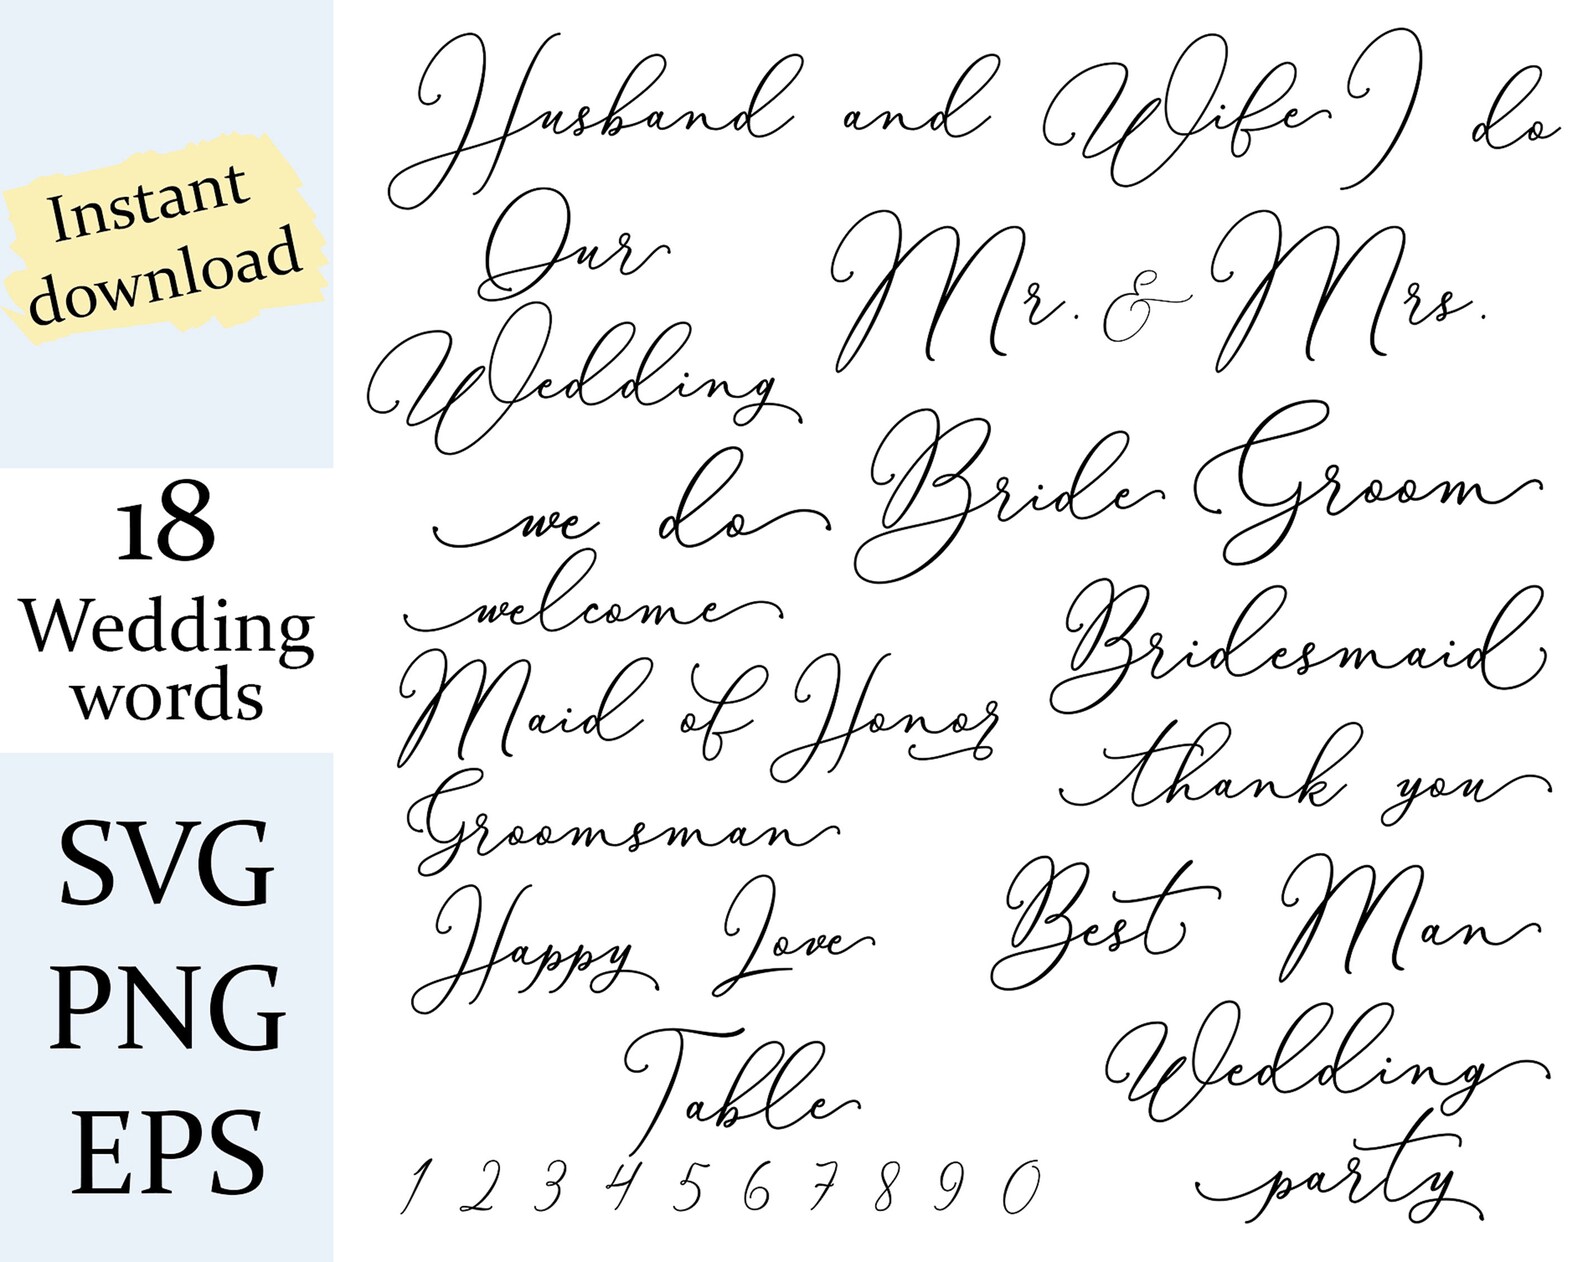 Instant
download
18
Wedding
words
SVG
PNG
EPS
Husband and Wife
I do
Our
Wedding
Mr. & Mrs.
we do
Bride
Groom
welcome
Bridesmaid
Maid of Honor
thank you
Groomsman
Happy
Love
Best Man
Table
Wedding
party
1 2 3 4 5 6 7 8 9 0